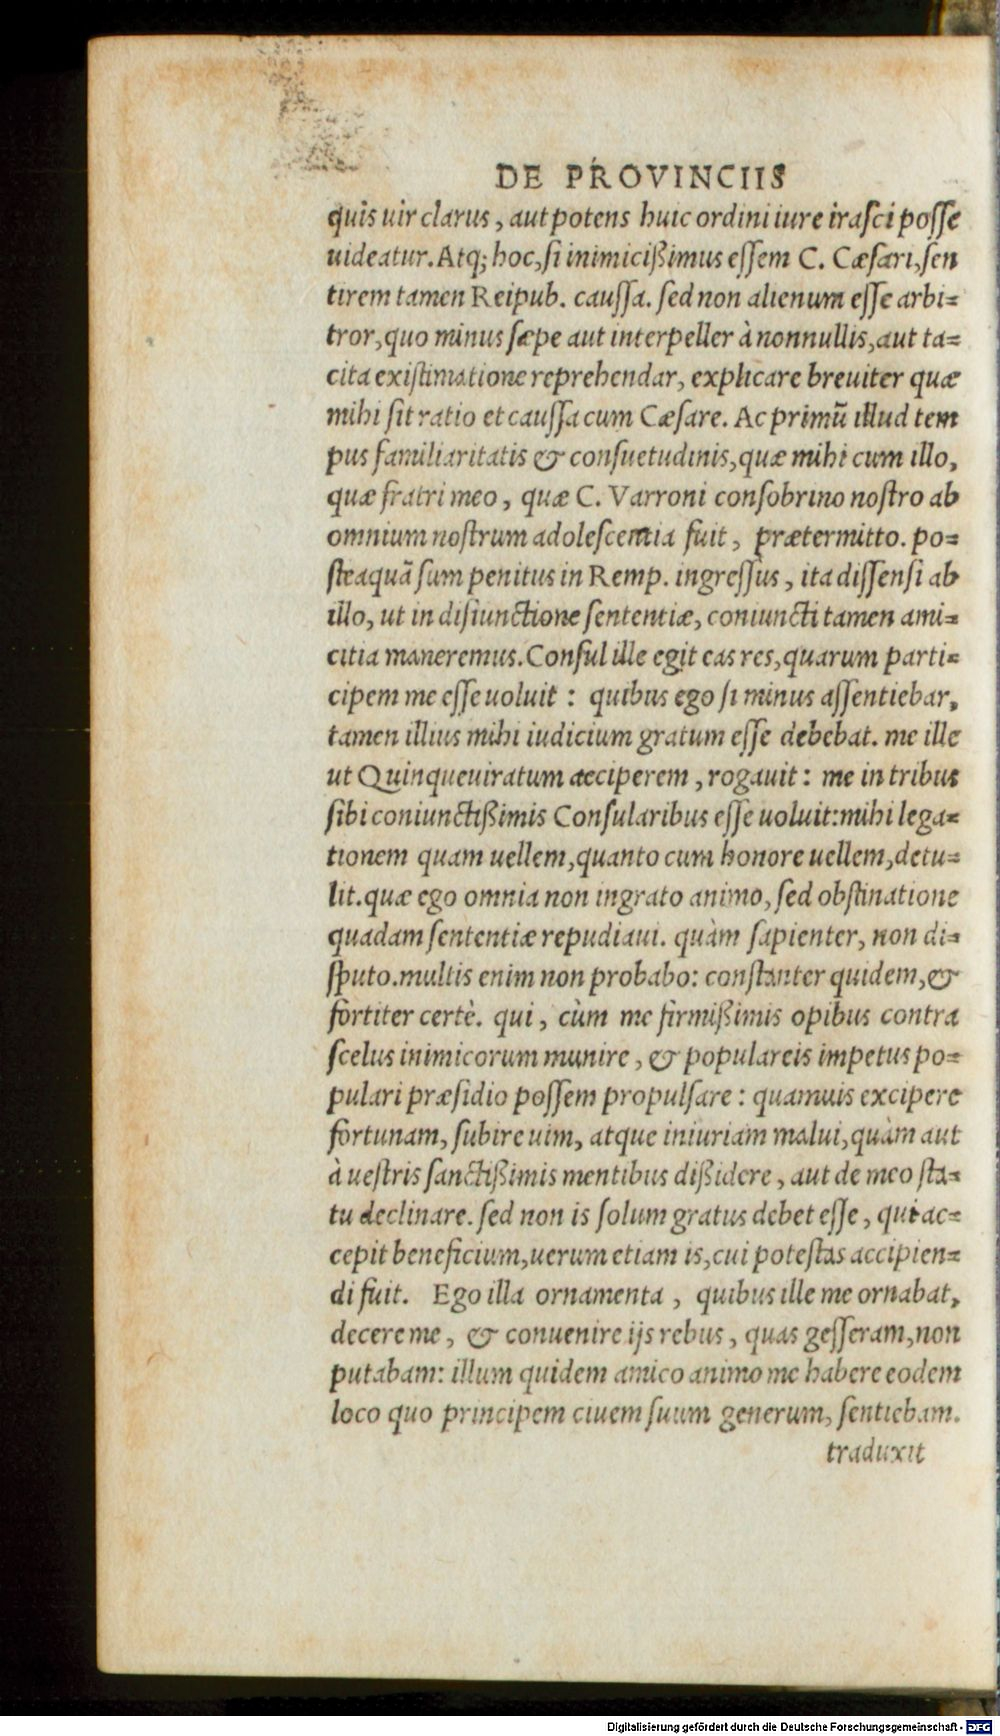 DE PROVINCIIS
quis uir clarus, aut potens huic ordini iure irasci posse
uideatur. Atq; hoc, si inimicißimus essem C. Cæsari, sen
tirem tamen Reipub. caussa. sed non alienum esse arbi=
tror, quo minus sæpe aut interpeller à nonnullis, aut ta=
cita existimatione reprehendar, explicare breuiter quæ
mihi sit ratio et caussa cum Cæsare. Ac primū illud tem
pus familiaritatis & consuetudinis, quæ mihi cum illo,
quæ fratri meo, quæ C. Varroni consobrino nostro ab
omnium nostrum adolescentia fuit, prætermitto. po=
steaquã sum penitus in Remp. ingressus, ita dissensi ab
illo, ut in disiunctione sententiæ, coniuncti tamen ami=
citia maneremus. Consul ille egit eas res, quarum parti=
cipem me esse uoluit: quibus ego si minus assentiebar,
tamen illius mihi iudicium gratum esse debebat. me ille
ut Quinqueuiratum acciperem, rogauit: me in tribus
sibi coniunctißimis Consularibus esse uoluit: mihi lega=
tionem quam uellem, quanto cum honore uellem, detu=
lit. quæ ego omnia non ingrato animo, sed obstinatione
quadam sententiæ repudiaui. quàm sapienter, non di=
sputo. multis enim non probabo: constanter quidem, &
fortiter certè. qui, cùm me firmißimis opibus contra
scelus inimicorum munire, & populareis impetus po=
pulari præsidio possem propulsare: quamuis excipere
fortunam, subire uim, atque iniuriam malui, quàm aut
à uestris sanctißimis mentibus dißidere, aut de meo sta=
tu declinare. sed non is solum gratus debet esse, qui ac=
cepit beneficium, uerum etiam is, cui potestas accipien=
di fuit. Ego illa ornamenta, quibus ille me ornabat,
decere me, & conuenire ijs rebus, quas gesseram, non
putabam: illum quidem amico animo me habere eodem
loco quo principem ciuem suum generum, sentiebam.
traduxit
Digitalisierung gefördert durch die Deutsche Forschungsgemeinschaft - DFG